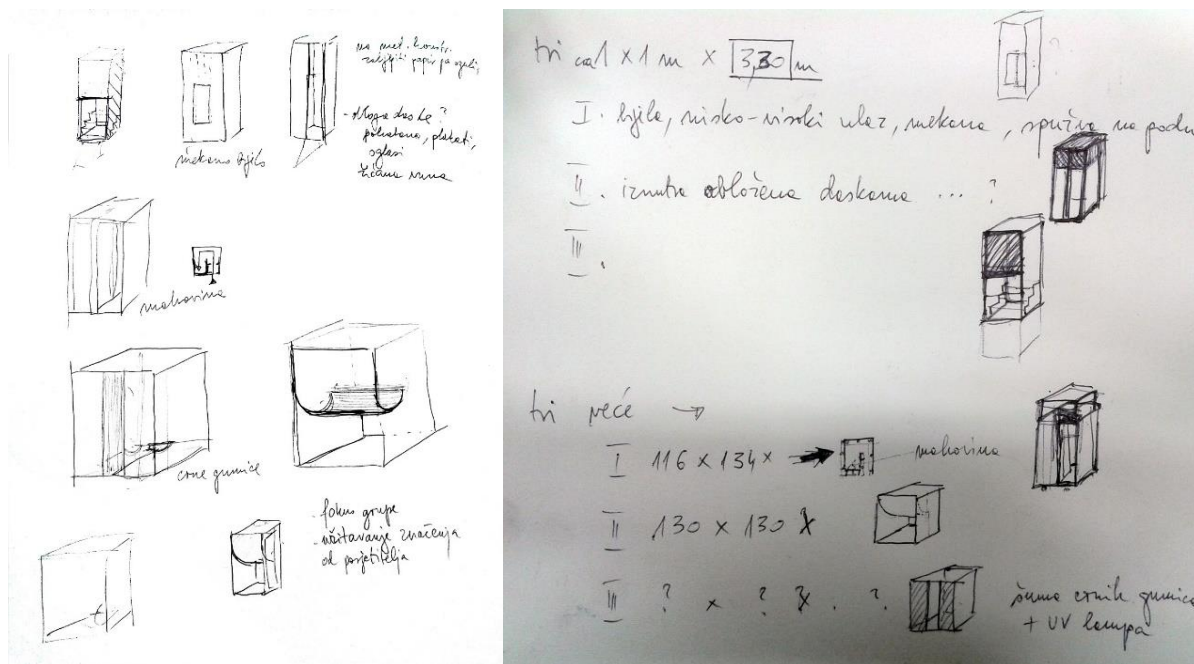 na met. konstr.
zalijepiti papir pa
- obloga daske?
plakati,
oglasi
žičana vuna
mekano bijelo
mahovina
crne gumice
- fokus grupe
- učitavanje značenja
od posjetitelja
tri cal 1 x 1 m x 3,30 m
I. bijela, nisko-visoki ulaz, mekana, spužva na podu
II. iznutra obložena daskama ... ?
III.
tri veće →
I 116 x 134 x → mahovina
II 130 x 130 x
III ? x ? x . ?
šuma crnih gumica
+ UV lampa